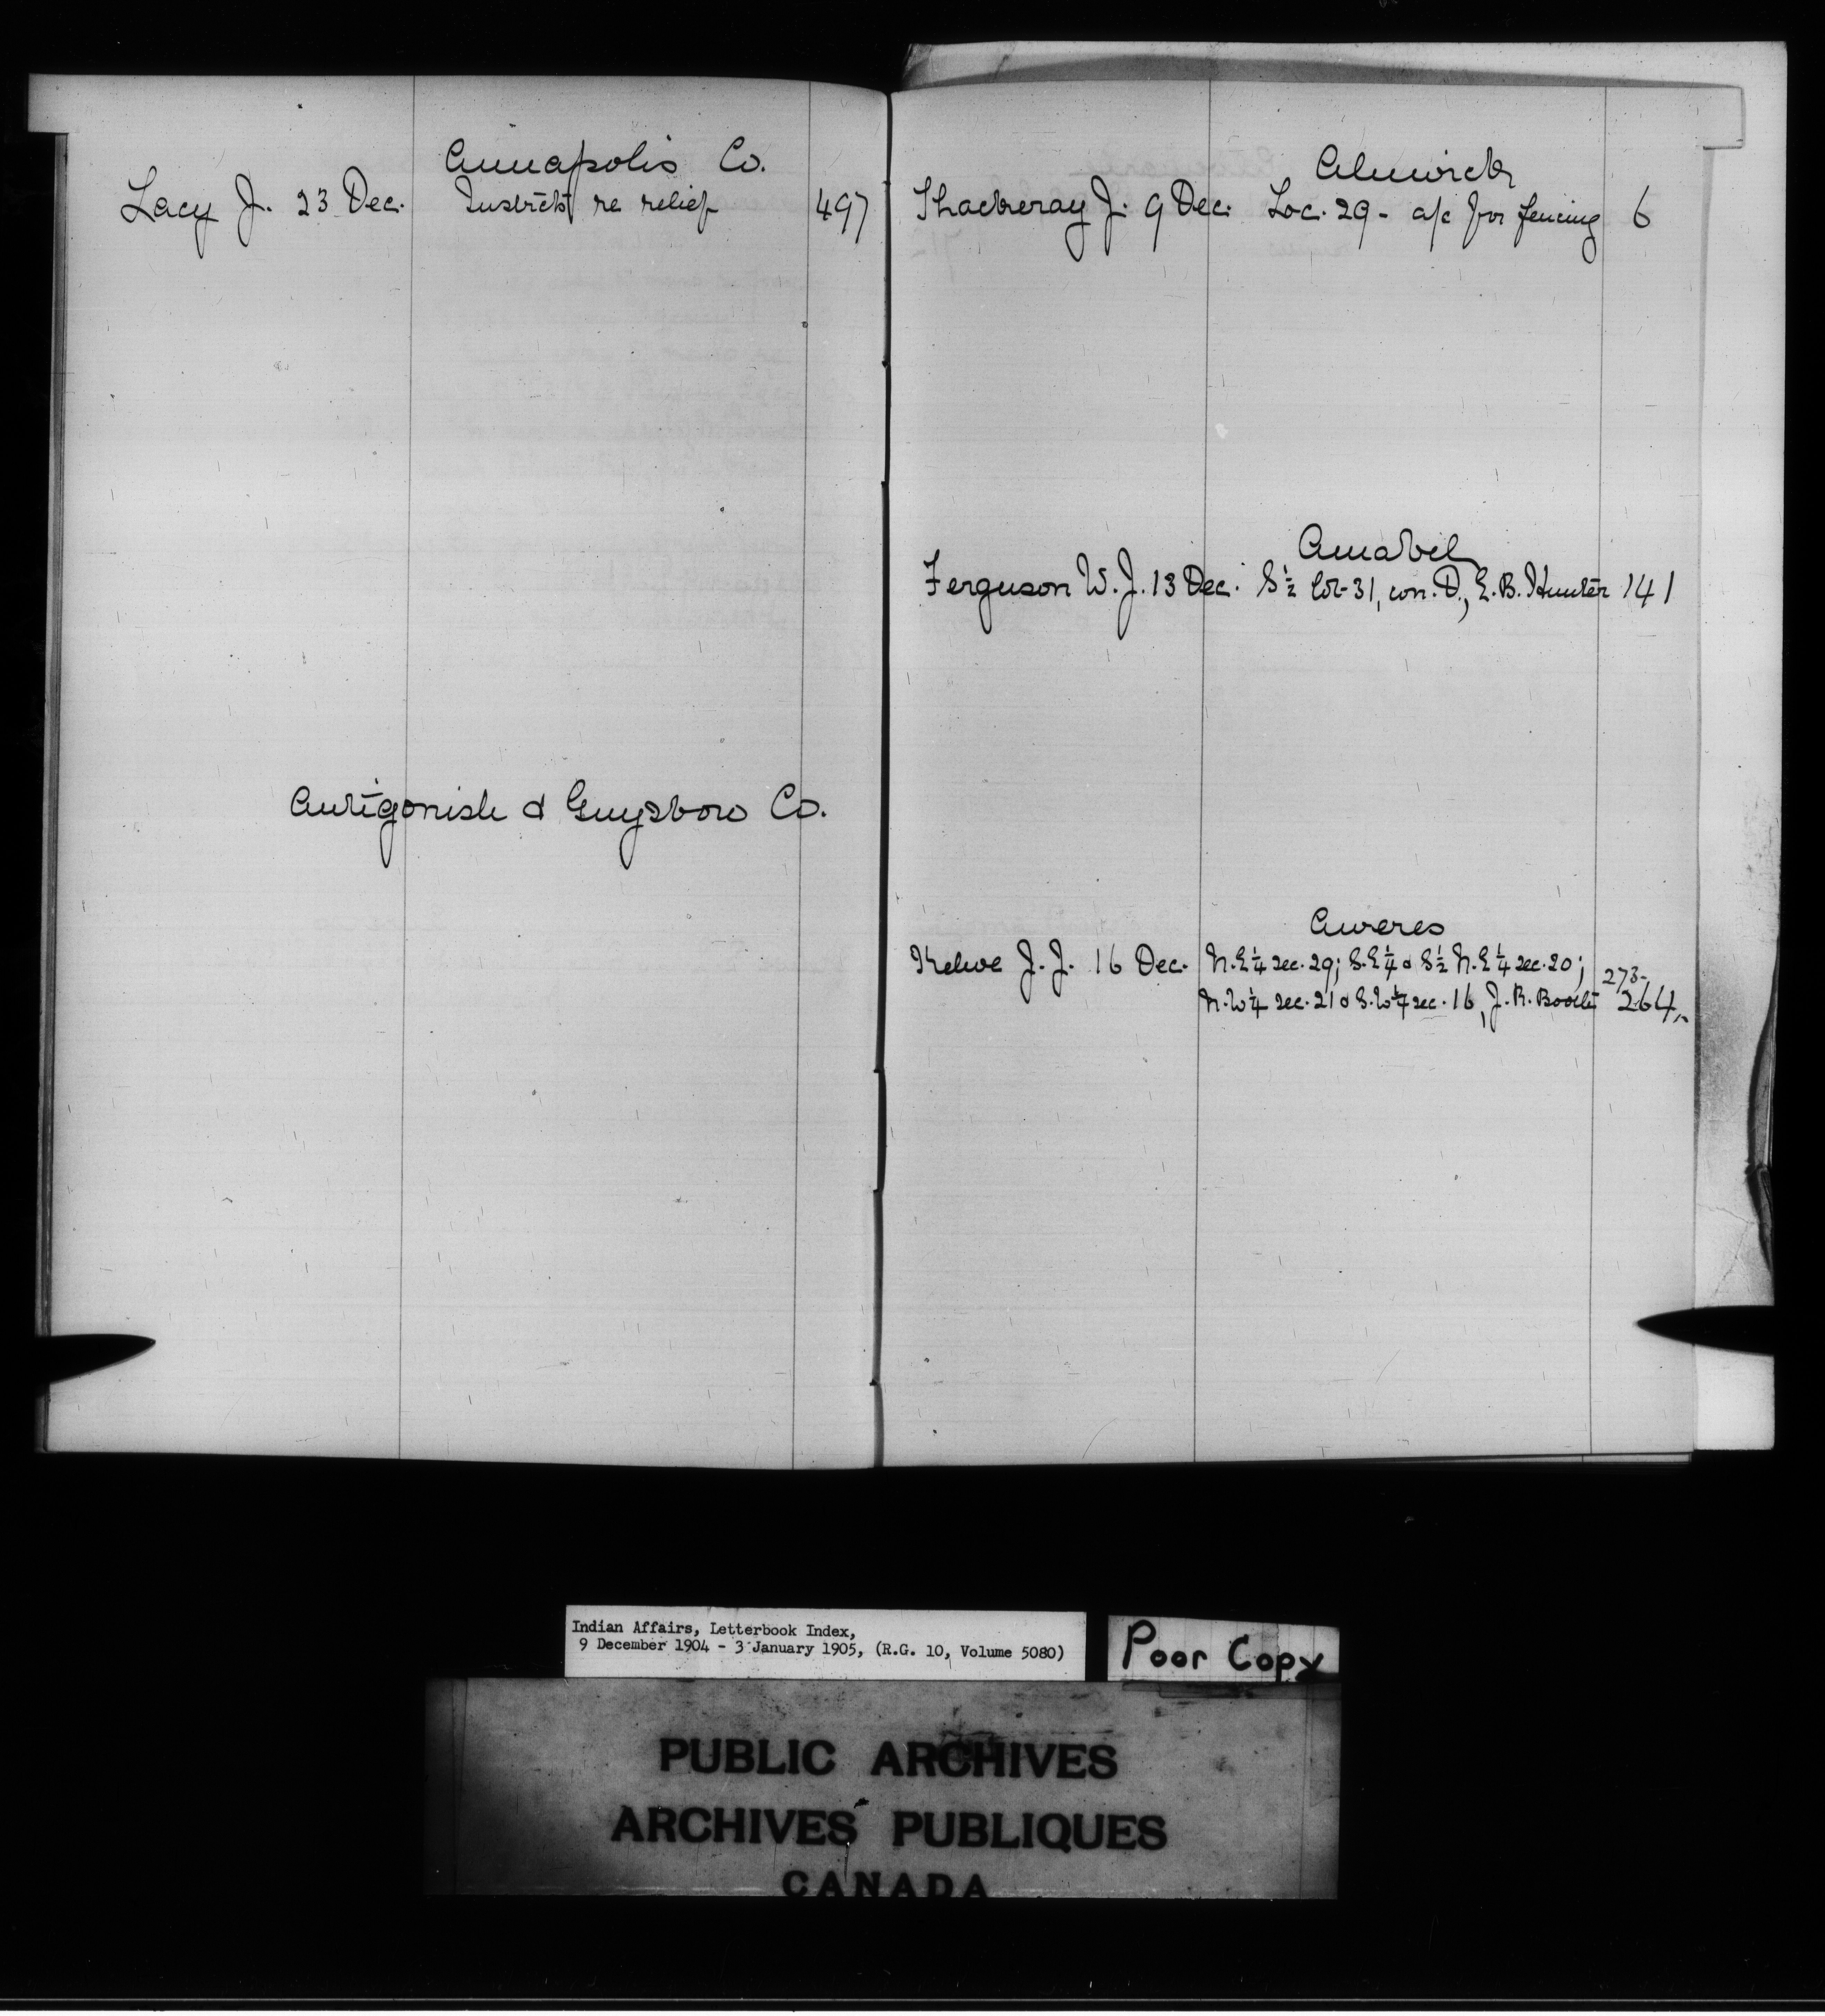 Annapolis Co.
Lacy J. 23 Dec. Instrcts re relief 497
Antigonish & Guysboro Co.
Alnwick
Thackeray J. 9 Dec. Loc. 29 - a/c for fencing 6
Amabel
Ferguson W. J. 13 Dec. S ½ lot 31, con. D., E. B. Hunter 141
Aweres
Kehoe J. J. 16 Dec. N.E ¼ sec. 29; S.E ¼ & S ½ N.E ¼ sec. 20; 273-
N.W ¼ sec. 21 & S.W ¼ sec. 16, J. R. Booth 264
Indian Affairs, Letterbook Index,
9 December 1904 - 3 January 1905, (R.G. 10, Volume 5080)
Poor Copy
PUBLIC ARCHIVES
ARCHIVES PUBLIQUES
CANADA